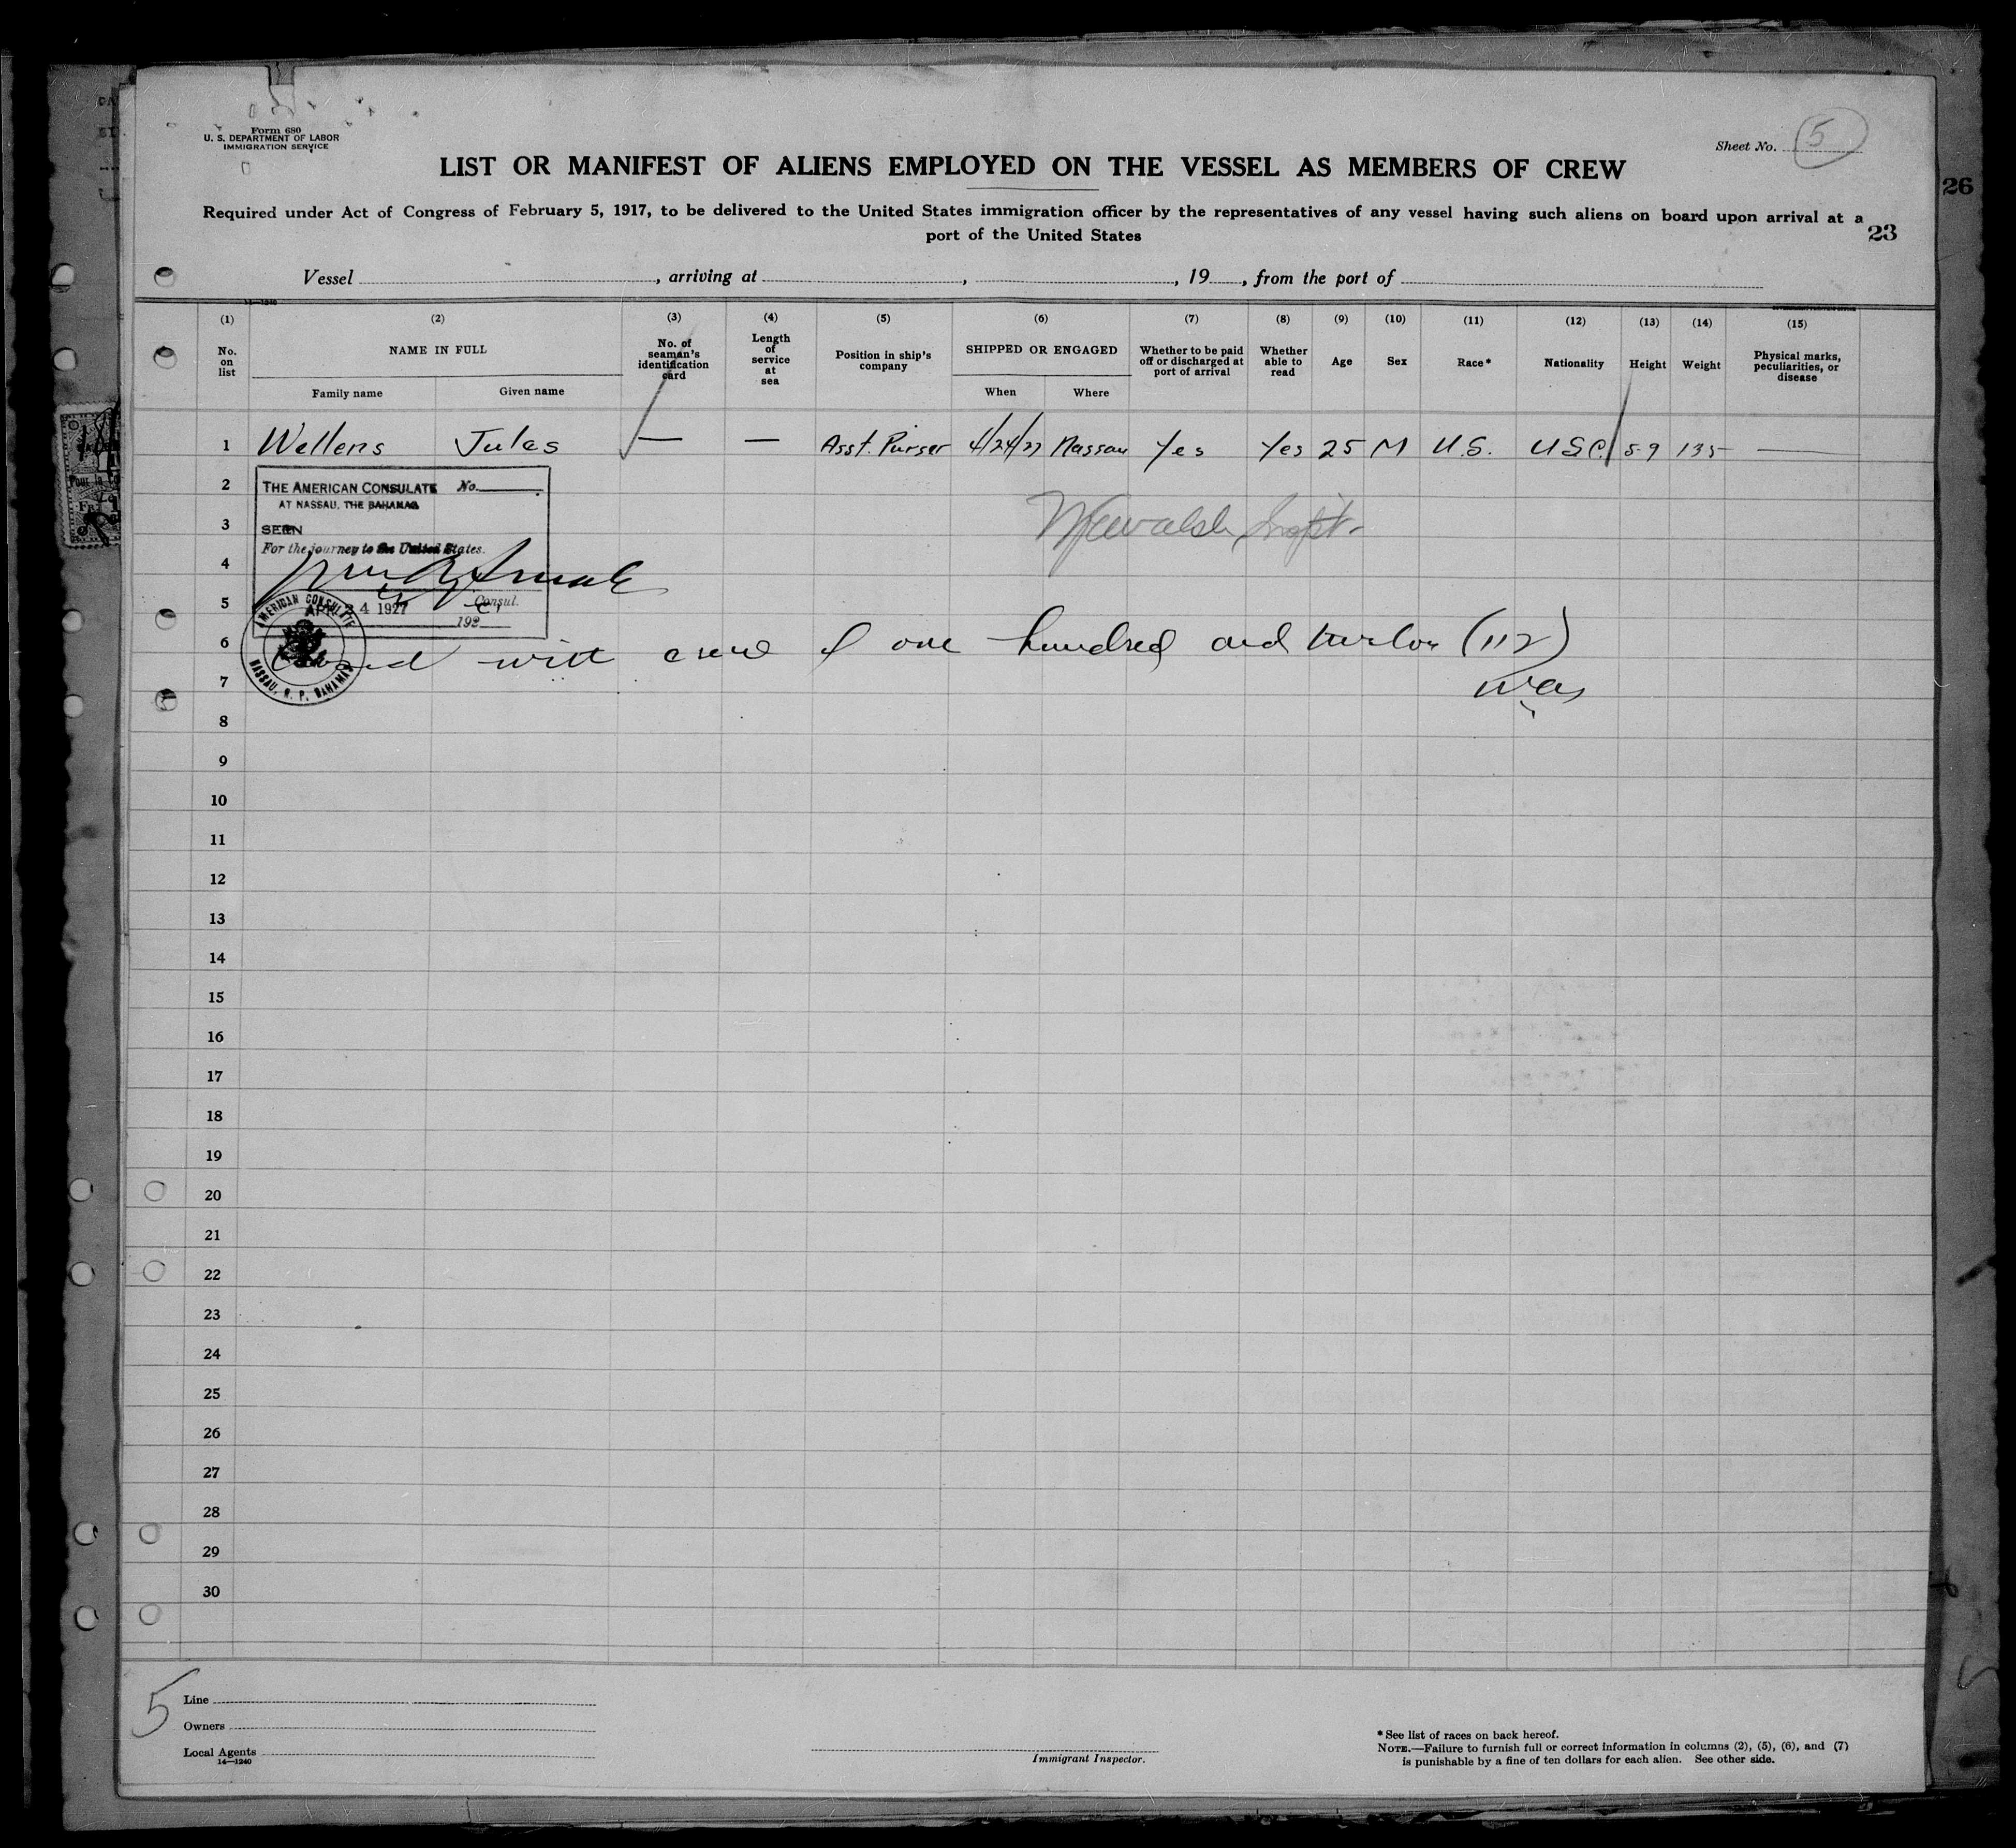 Form 680
U. S. DEPARTMENT OF LABOR
IMMIGRATION SERVICE
Sheet No. 5
LIST OR MANIFEST OF ALIENS EMPLOYED ON THE VESSEL AS MEMBERS OF CREW
26
Required under Act of Congress of February 5, 1917, to be delivered to the United States immigration officer by the representatives of any vessel having such aliens on board upon arrival at a
port of the United States
23
Vessel , arriving at , , 19 , from the port of
14—1240
(1) (2) (3) (4) (5) (6) (7) (8) (9) (10) (11) (12) (13) (14) (15)
No. on list NAME IN FULL Family name Given name No. of seaman's identification card Length of service at sea Position in ship's company SHIPPED OR ENGAGED When Where Whether to be paid off or discharged at port of arrival Whether able to read Age Sex Race* Nationality Height Weight Physical marks, peculiarities, or disease
1 Wellens Jules — — Asst. Purser 4/24/27 Nassau Yes Yes 25 M U.S. USC 5-9 135 —
2
THE AMERICAN CONSULATE No.
AT NASSAU, THE BAHAMAS
3
SEEN
For the journey to the United States.
4
5
Consul.
APR 24 1927
192
AMERICAN CONSULATE
NASSAU, N. P. BAHAMAS
6 with crew of one hundred and twelve (112)
7
8
9
10
11
12
13
14
15
16
17
18
19
20
21
22
23
24
25
26
27
28
29
30
5
Line
Owners
Local Agents
14—1240
Immigrant Inspector.
* See list of races on back hereof.
NOTE.—Failure to furnish full or correct information in columns (2), (5), (6), and (7)
is punishable by a fine of ten dollars for each alien. See other side.